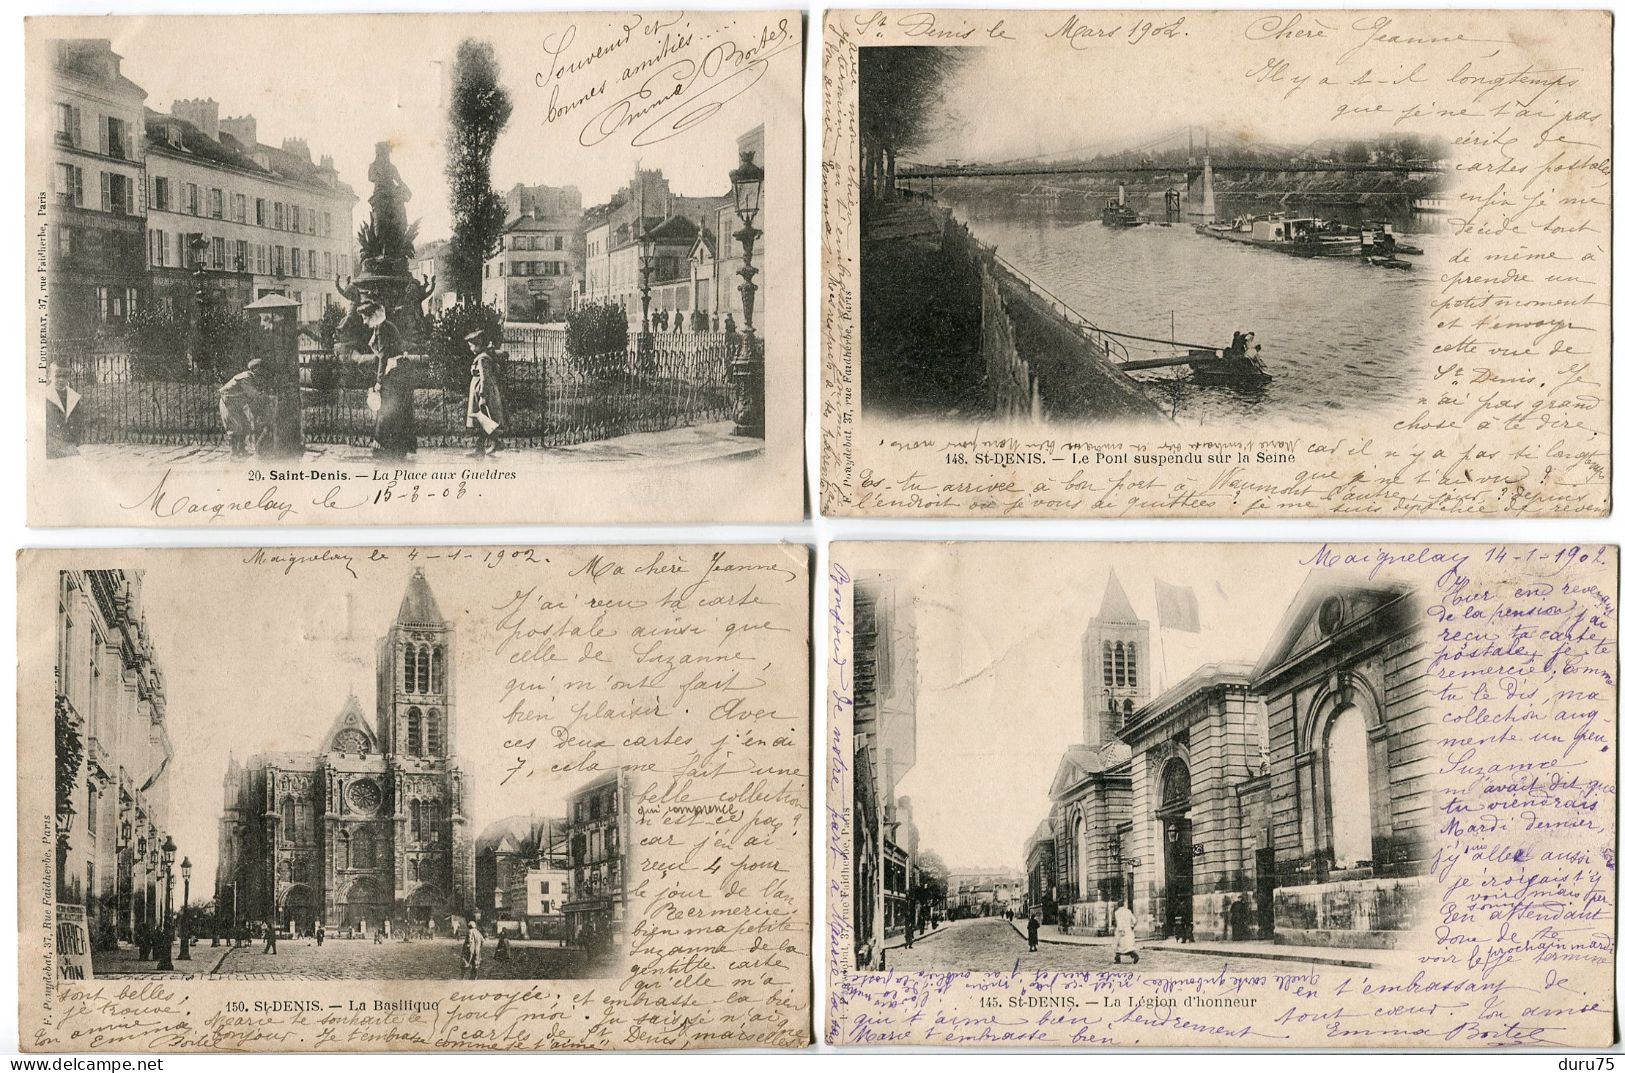 Souvenir et
bonnes amitiés....
Emma Boitel.
F. POUYDEBAT, 37, rue Faidherbe, Paris
20. Saint-Denis. — La Place aux Gueldres
Maignelay le 15-3-03.
St Denis le Mars 1902. Chère Jeanne,
Il y a t-il longtemps
que je ne t'ai pas
écrit de
cartes postales
enfin je me
décide tout
de même à
prendre un
petit moment
et t'envoyer
cette vue de
St Denis. Je
n'ai pas grand
chose à te dire.
car il n'y a pas si longtemps
que je ne t'ai vu?
Es-tu arrivée à bon port à Waumont l'autre jour? depuis
l'endroit où je vous ai quittées? je me suis dépêchée de revenir
F. Pouydebat, 37, rue Faidherbe, Paris
148. St-DENIS. — Le Pont suspendu sur la Seine
Maignelay le 4-1-1902.
Ma chère Jeanne,
J'ai reçu ta carte
postale ainsi que
celle de Suzanne,
qui m'ont fait
bien plaisir. Avec
ces deux cartes, j'en ai
7, cela me fait une
belle collection
qui commence
n'est ce pas?
car j'en ai
reçu 4 pour
le jour de l'an
Remercie
bien ma petite
Suzanne de la
gentille carte
qu'elle m'a
envoyée; et embrasse-la bien
pour moi. Tu sais si j'ai
cartes de St Denis,
sont belles,
je trouve.
Ton amie
Emma
Boitel
Marie te souhaite le
bonjour. Je t'embrasse comme je t'aime
F. Pouydebat, 37, Rue Faidherbe, Paris
150. St-DENIS. — La Basilique
Maignelay 14-1-1902
Hier en revenant
de la pension j'ai
reçu ta carte
postale, je te
remercie, comme
tu le dis, ma
collection aug-
mente un peu.
Suzanne
m'avait dit que
tu viendrais
Mardi dernier,
j'y allée aussi
je croyais t'y
voir mais per-
sonne
En attendant
donc de te
voir le prochain mardi
je termine
en t'embrassant de
tout cœur. Ton amie
qui t'aime bien tendrement Emma Boitel
Marie t'embrasse bien.
Bonjour de notre part à
F. Pouydebat, 37, rue Faidherbe, Paris
145. St-DENIS. — La Légion d'honneur
duru75